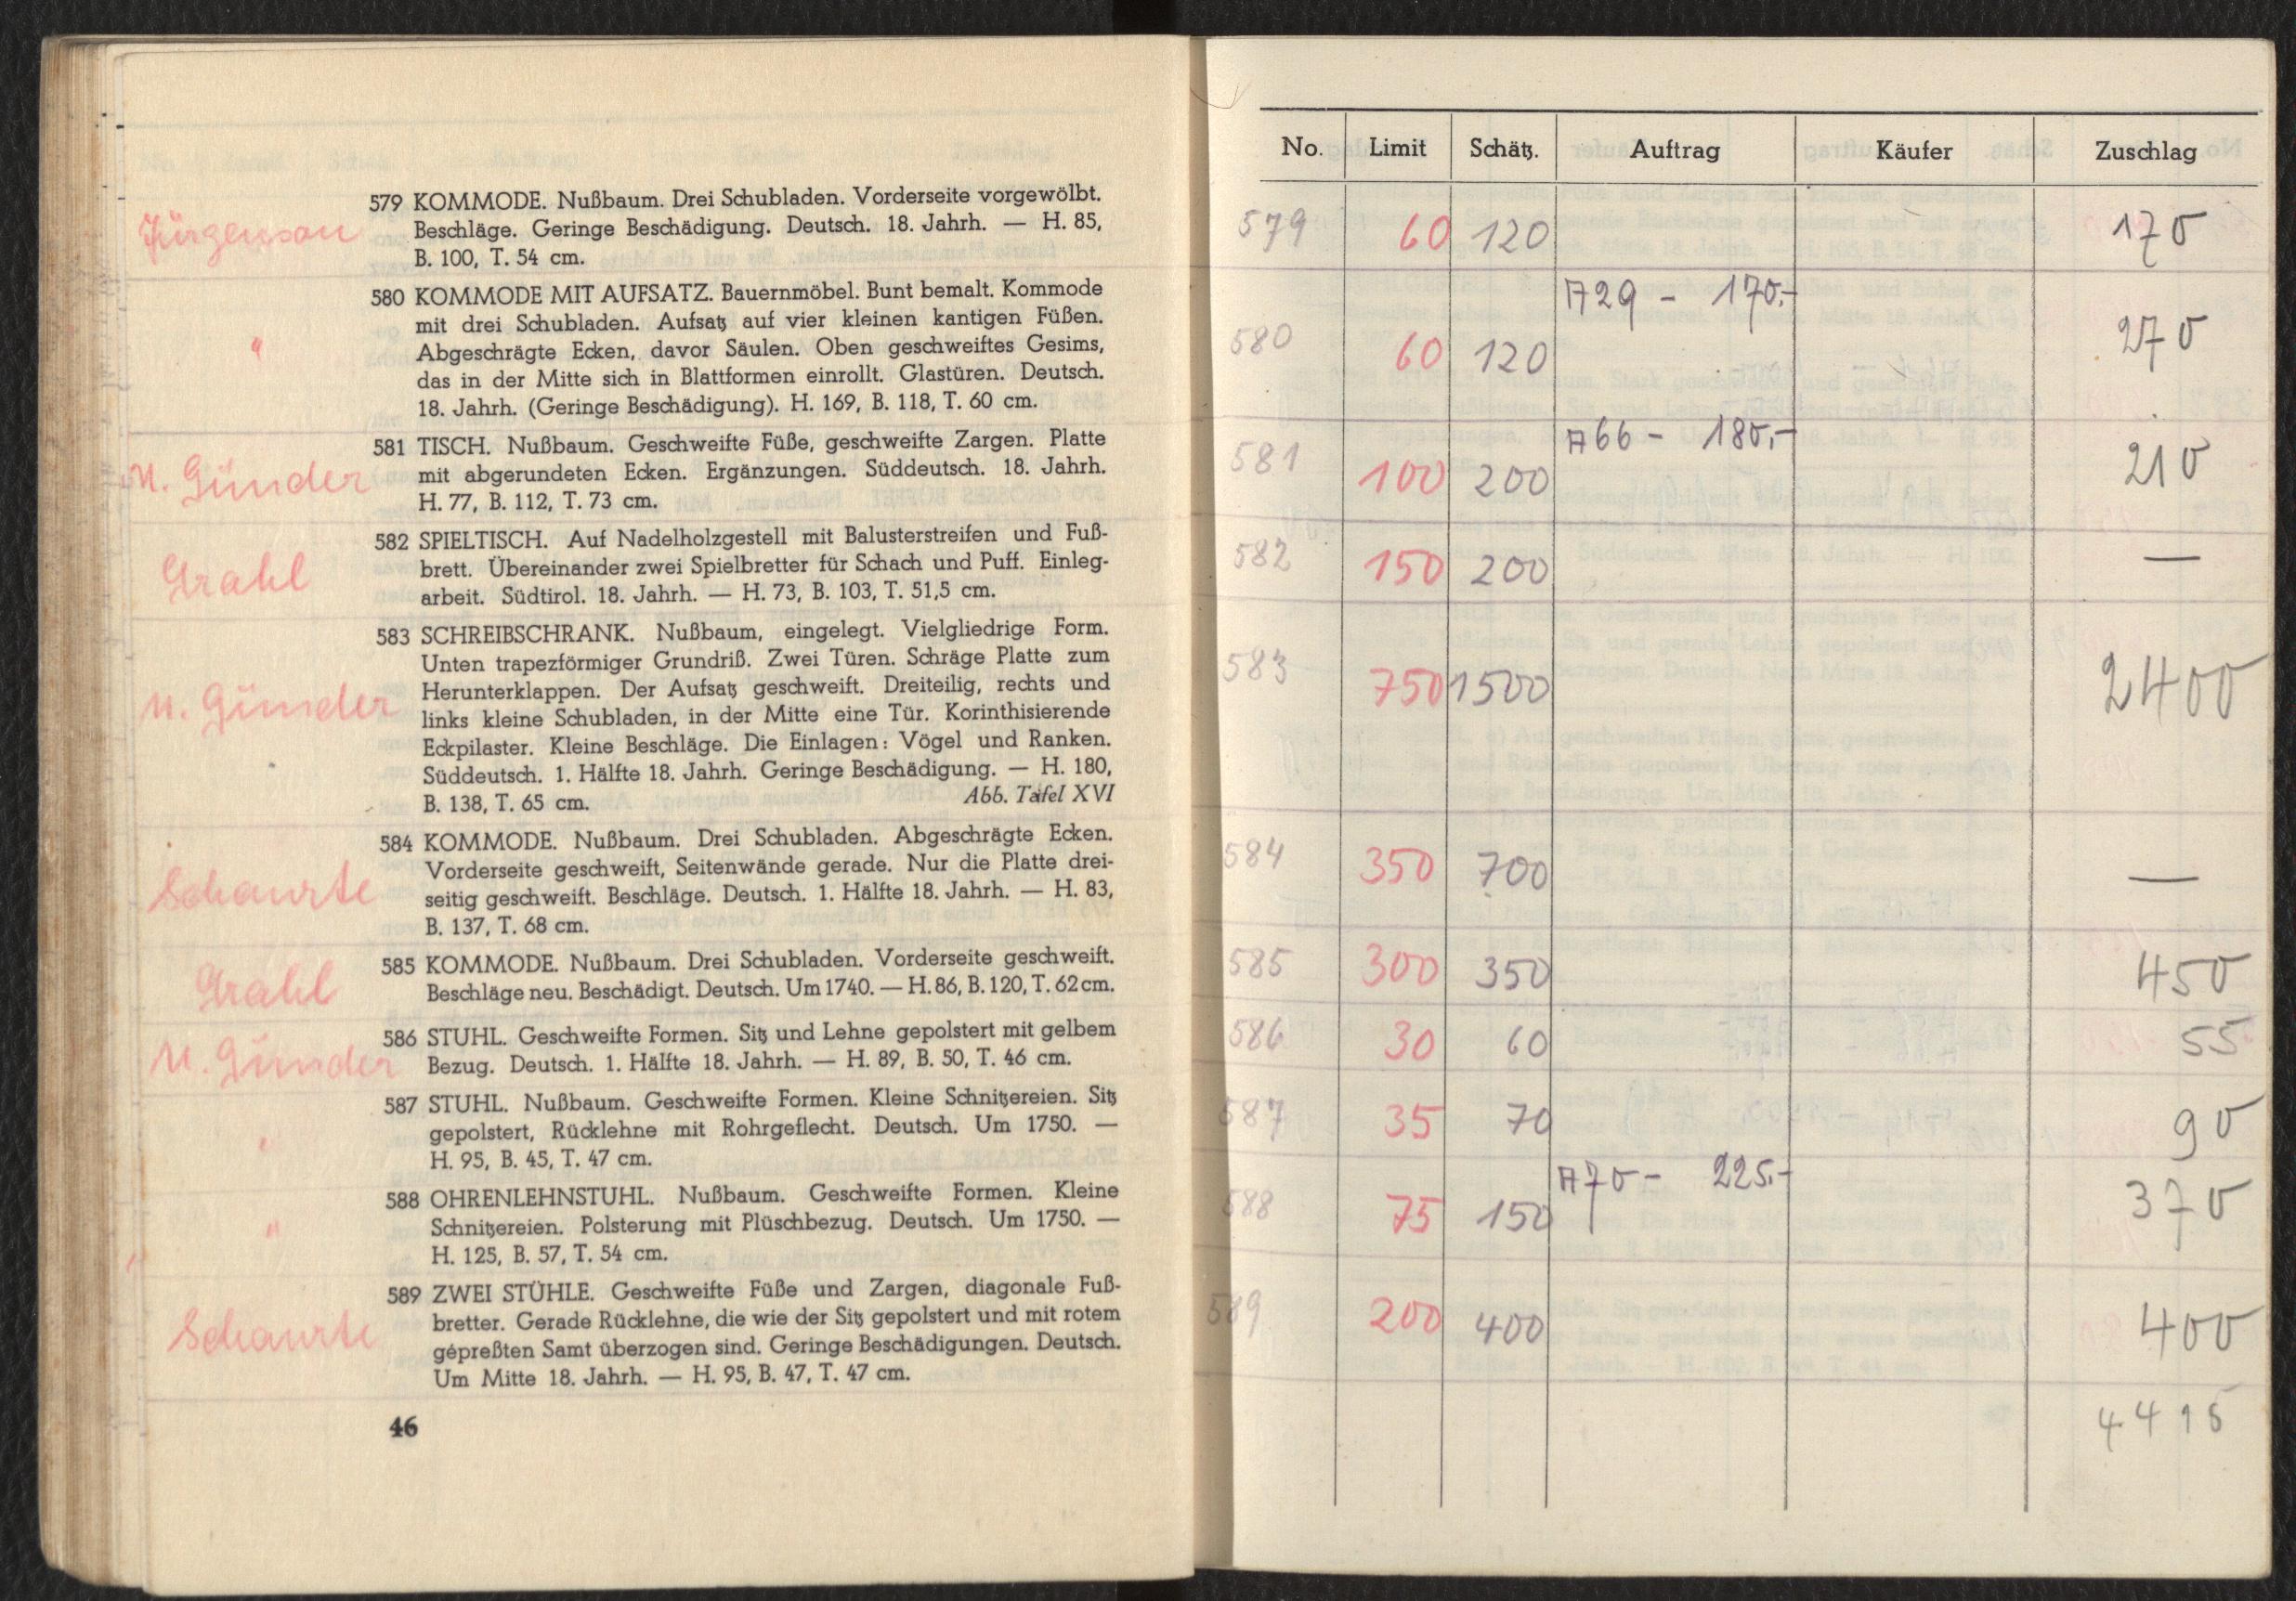 579 KOMMODE. Nußbaum. Drei Schubladen. Vorderseite vorgewölbt.
Beschläge. Geringe Beschädigung. Deutsch. 18. Jahrh. — H. 85,
B. 100, T. 54 cm.
Jürgensson
580 KOMMODE MIT AUFSATZ. Bauernmöbel. Bunt bemalt. Kommode
mit drei Schubladen. Aufsatz auf vier kleinen kantigen Füßen.
Abgeschrägte Ecken, davor Säulen. Oben geschweiftes Gesims,
das in der Mitte sich in Blattformen einrollt. Glastüren. Deutsch.
18. Jahrh. (Geringe Beschädigung). H. 169, B. 118, T. 60 cm.
"
581 TISCH. Nußbaum. Geschweifte Füße, geschweifte Zargen. Platte
mit abgerundeten Ecken. Ergänzungen. Süddeutsch. 18. Jahrh.
H. 77, B. 112, T. 73 cm.
M. Günder
582 SPIELTISCH. Auf Nadelholzgestell mit Balusterstreifen und Fuß-
brett. Übereinander zwei Spielbretter für Schach und Puff. Einleg-
arbeit. Südtirol. 18. Jahrh. — H. 73, B. 103, T. 51,5 cm.
Grahl
583 SCHREIBSCHRANK. Nußbaum, eingelegt. Vielgliedrige Form.
Unten trapezförmiger Grundriß. Zwei Türen. Schräge Platte zum
Herunterklappen. Der Aufsatz geschweift. Dreiteilig, rechts und
links kleine Schubladen, in der Mitte eine Tür. Korinthisierende
Eckpilaster. Kleine Beschläge. Die Einlagen: Vögel und Ranken.
Süddeutsch. 1. Hälfte 18. Jahrh. Geringe Beschädigung. — H. 180,
B. 138, T. 65 cm. Abb. Tafel XVI
M. Günder
584 KOMMODE. Nußbaum. Drei Schubladen. Abgeschrägte Ecken.
Vorderseite geschweift, Seitenwände gerade. Nur die Platte drei-
seitig geschweift. Beschläge. Deutsch. 1. Hälfte 18. Jahrh. — H. 83,
B. 137, T. 68 cm.
Schaurte
585 KOMMODE. Nußbaum. Drei Schubladen. Vorderseite geschweift.
Beschläge neu. Beschädigt. Deutsch. Um 1740. — H. 86, B. 120, T. 62 cm.
Grahl
586 STUHL. Geschweifte Formen. Sitz und Lehne gepolstert mit gelbem
Bezug. Deutsch. 1. Hälfte 18. Jahrh. — H. 89, B. 50, T. 46 cm.
M. Günder
587 STUHL. Nußbaum. Geschweifte Formen. Kleine Schnitzereien. Sitz
gepolstert, Rücklehne mit Rohrgeflecht. Deutsch. Um 1750. —
H. 95, B. 45, T. 47 cm.
"
588 OHRENLEHNSTUHL. Nußbaum. Geschweifte Formen. Kleine
Schnitzereien. Polsterung mit Plüschbezug. Deutsch. Um 1750. —
H. 125, B. 57, T. 54 cm.
"
589 ZWEI STÜHLE. Geschweifte Füße und Zargen, diagonale Fuß-
bretter. Gerade Rücklehne, die wie der Sitz gepolstert und mit rotem
gepreßten Samt überzogen sind. Geringe Beschädigungen. Deutsch.
Um Mitte 18. Jahrh. — H. 95, B. 47, T. 47 cm.
Schaurte
46
No. Limit Schätz. Auftrag Käufer Zuschlag
579 60 120 170
580 60 120 A29 - 170.- 270
581 100 200 A66 - 180,- 210
582 150 200 —
583 750 1500 2400
584 350 700 —
585 300 350 450
586 30 60 55
587 35 70 90
588 75 150 A70 - 225.- 370
589 200 400 400
4415